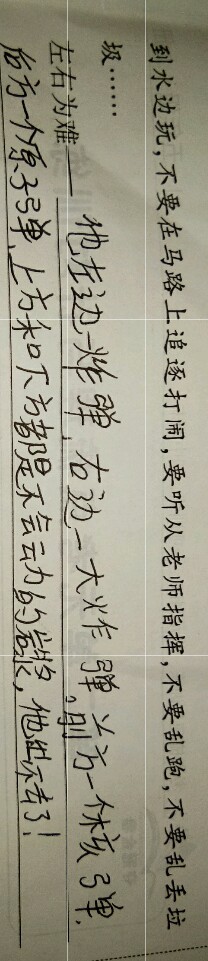 到水边玩，不要在马路上追逐打闹，要听从老师指挥，不要乱跑，不要乱丢垃
圾……
左右为难——他左边一炸弹，右边一大炸弹，前方一个核弹，
后方一个原子弹，上方和下方都是不会动的岩浆，他出不去了！